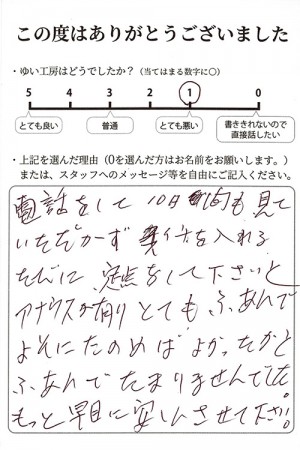 この度はありがとうございました
・ゆい工房はどうでしたか？（当てはまる数字に〇）
5 4 3 2 1 0
とても良い 普通 とても悪い 書ききれないので直接話したい
・上記を選んだ理由（0を選んだ方はお名前をお願いします。）
または、スタッフへのメッセージ等を自由にご記入ください。
電話をして 10日間も見て
いただかず スイッチを入れる
たびに 点をして下さいと
アナウスが有り とても ふあんで
よそにたのめば よかったかと
ふあんで たまりませんでした。
もっと早目に安しんさせて下さい。